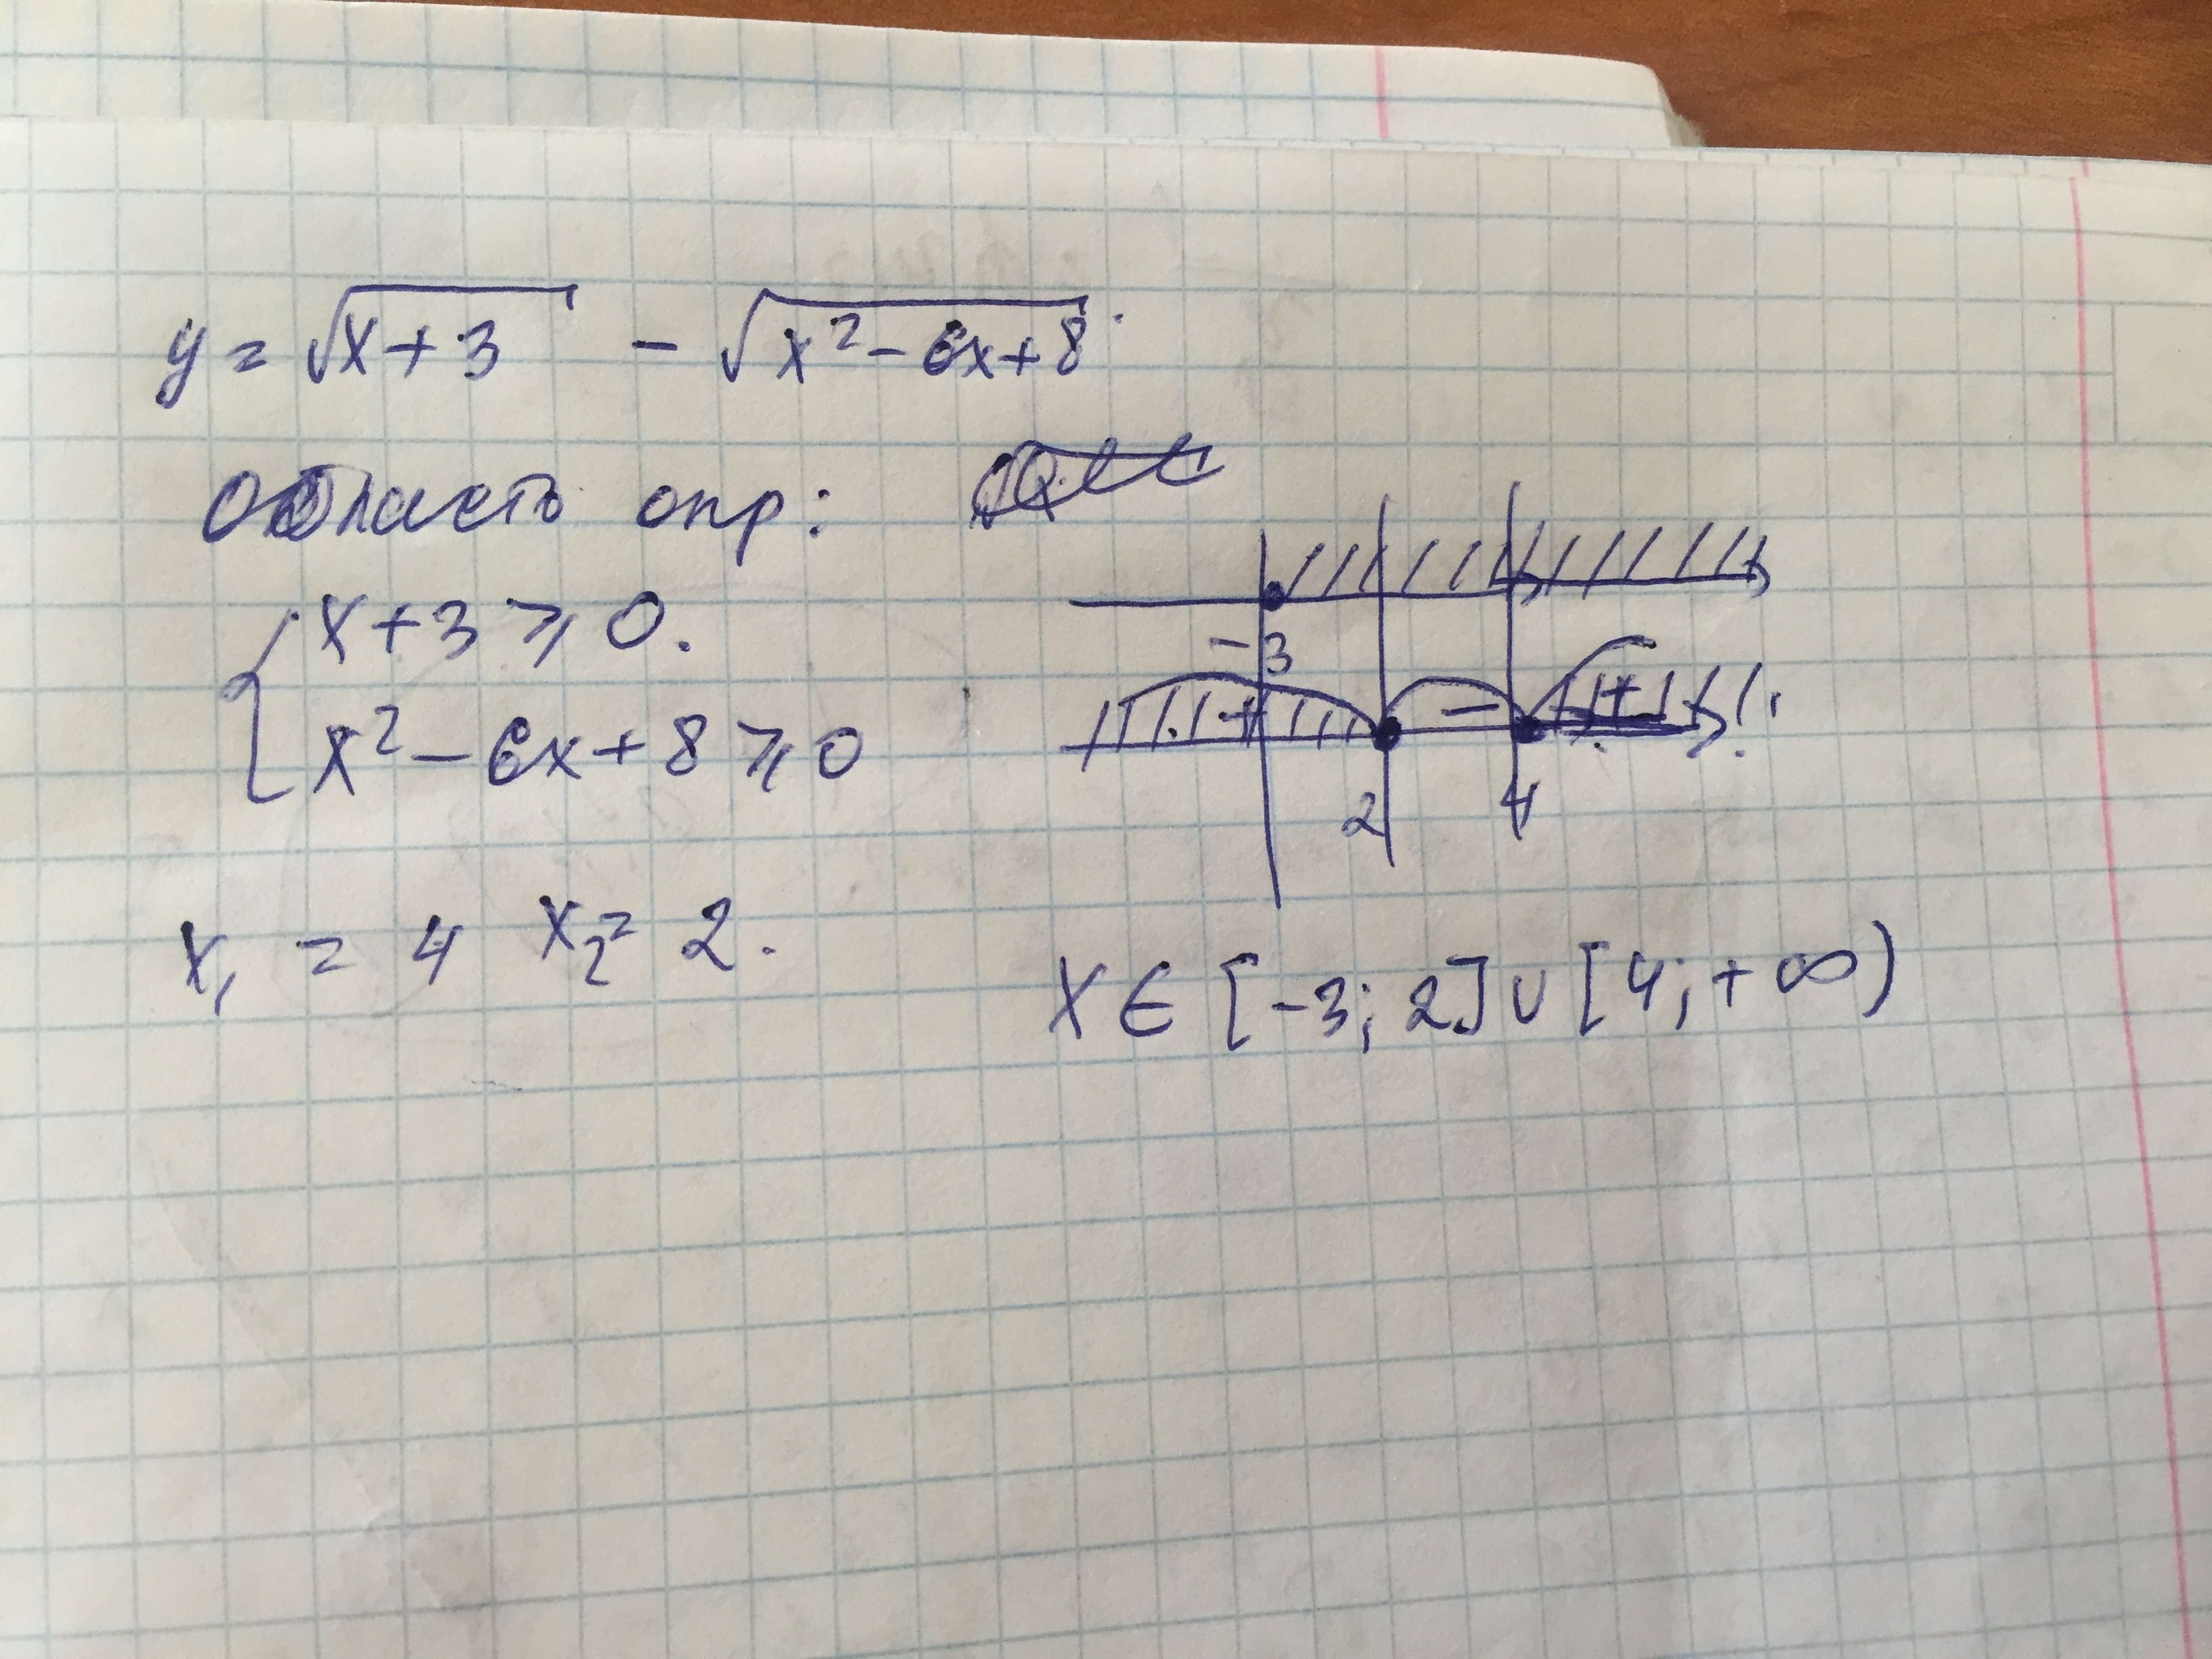 y = √x+3 - √x²-6x+8.
Область опр:
{ x+3 ⩾ 0.
x²-6x+8 ⩾ 0
-3
+ - +
2 4
x₁ = 4 x₂ = 2.
x ∈ [-3; 2] ∪ [4; +∞)